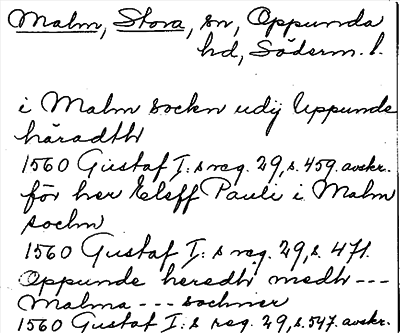 Malm, Stora, sn, Oppunda
hd, Söderm. l.
i Malm sockn udij Uppunde
häradth
1560 Gustaf I:s reg. 29, s. 459. avskr.
för her Eleff Pauli i Malm
sochn
1560 Gustaf I:s reg. 29, s. 471.
Oppunde heredh medh ---
Malma --- sochner
1560 Gustaf I:s reg. 29, s. 547. avskr.